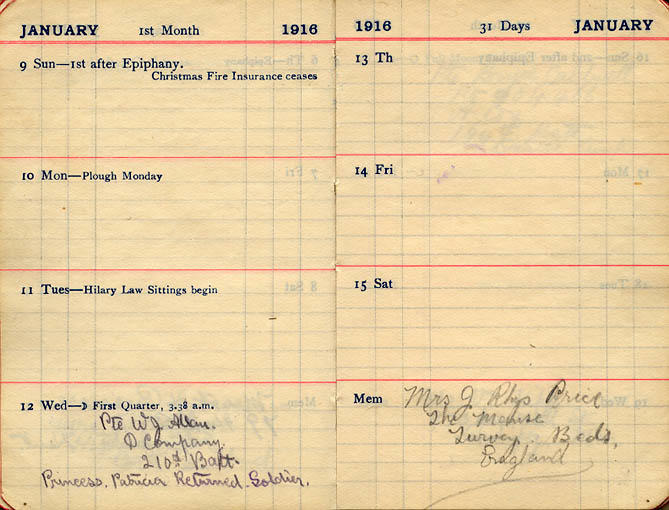 JANUARY 1st Month 1916
9 Sun—1st after Epiphany.
Christmas Fire Insurance ceases
10 Mon—Plough Monday
11 Tues—Hilary Law Sittings begin
12 Wed—☽ First Quarter, 3.38 a.m.
Pte W J Allan.
D Company.
210th Batt.
Princess. Patricia Returned. Soldier.
1916 31 Days JANUARY
13 Th
14 Fri
15 Sat
Mem Mrs J. Rhys Price
The Manse
Turvey Beds,
England